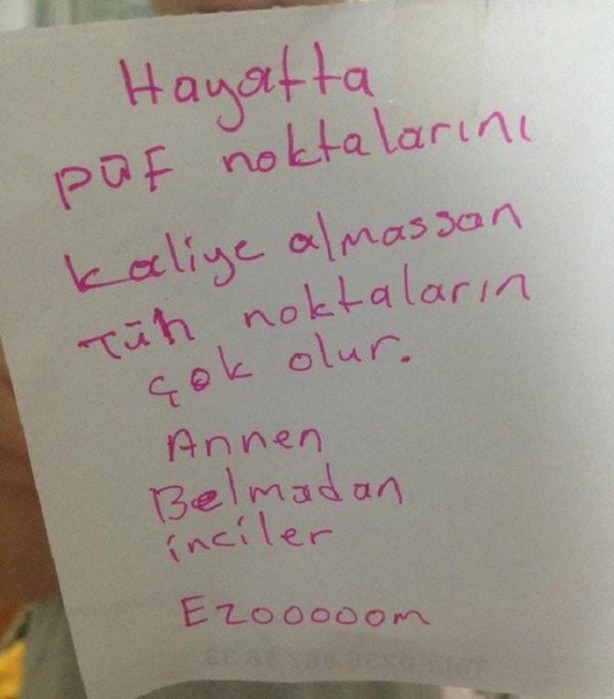 Hayatta
PÜF noktalarını
kaliye almassan
Tüh noktaların
çok olur.
Annen
Belmadan
inciler
Ezooooom